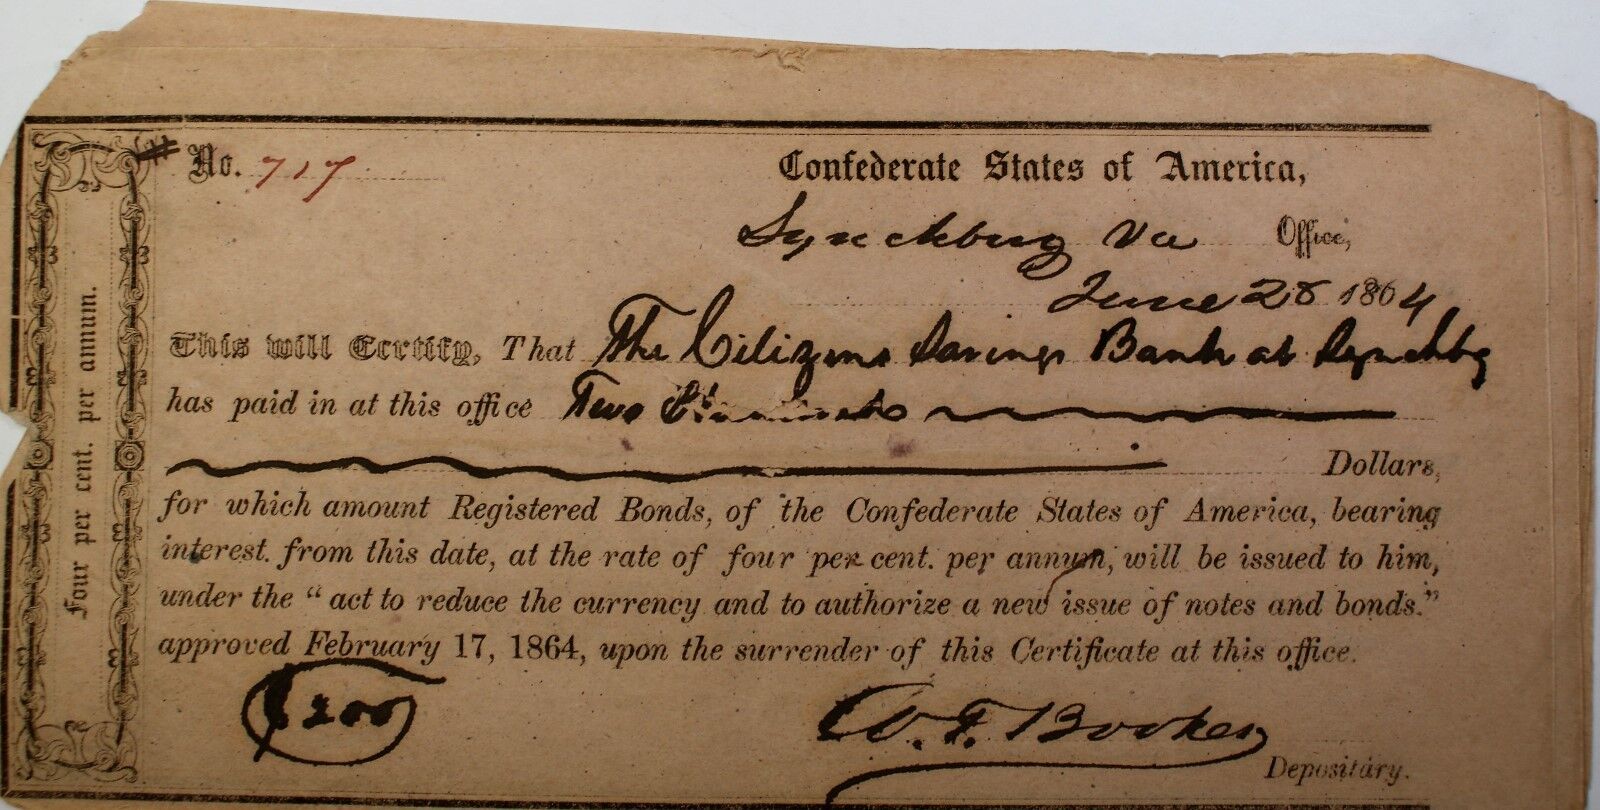 Four per cent. per annum.
No. 717
Confederate States of America,
Lynchburg Va Office,
June 28 1864
This will Certify, That The Citizens Savings Bank at Lynchbg
has paid in at this office Two Hundred
Dollars,
for which amount Registered Bonds, of the Confederate States of America, bearing
interest. from this date, at the rate of four per cent. per annum, will be issued to him,
under the "act to reduce the currency and to authorize a new issue of notes and bonds."
approved February 17, 1864, upon the surrender of this Certificate at this office.
$200
W. F. Booker
Depositary.